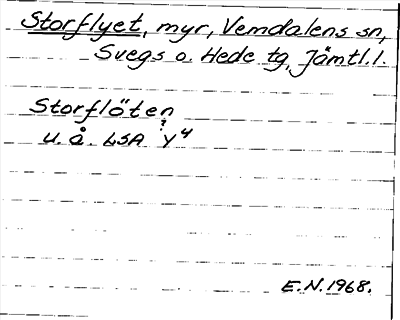 Storflyet, myr, Vemdalens sn,
Svegs o. Hede tg, Jämtl. l.
Storflöten
u. å. LSA Y4
E.N. 1968.